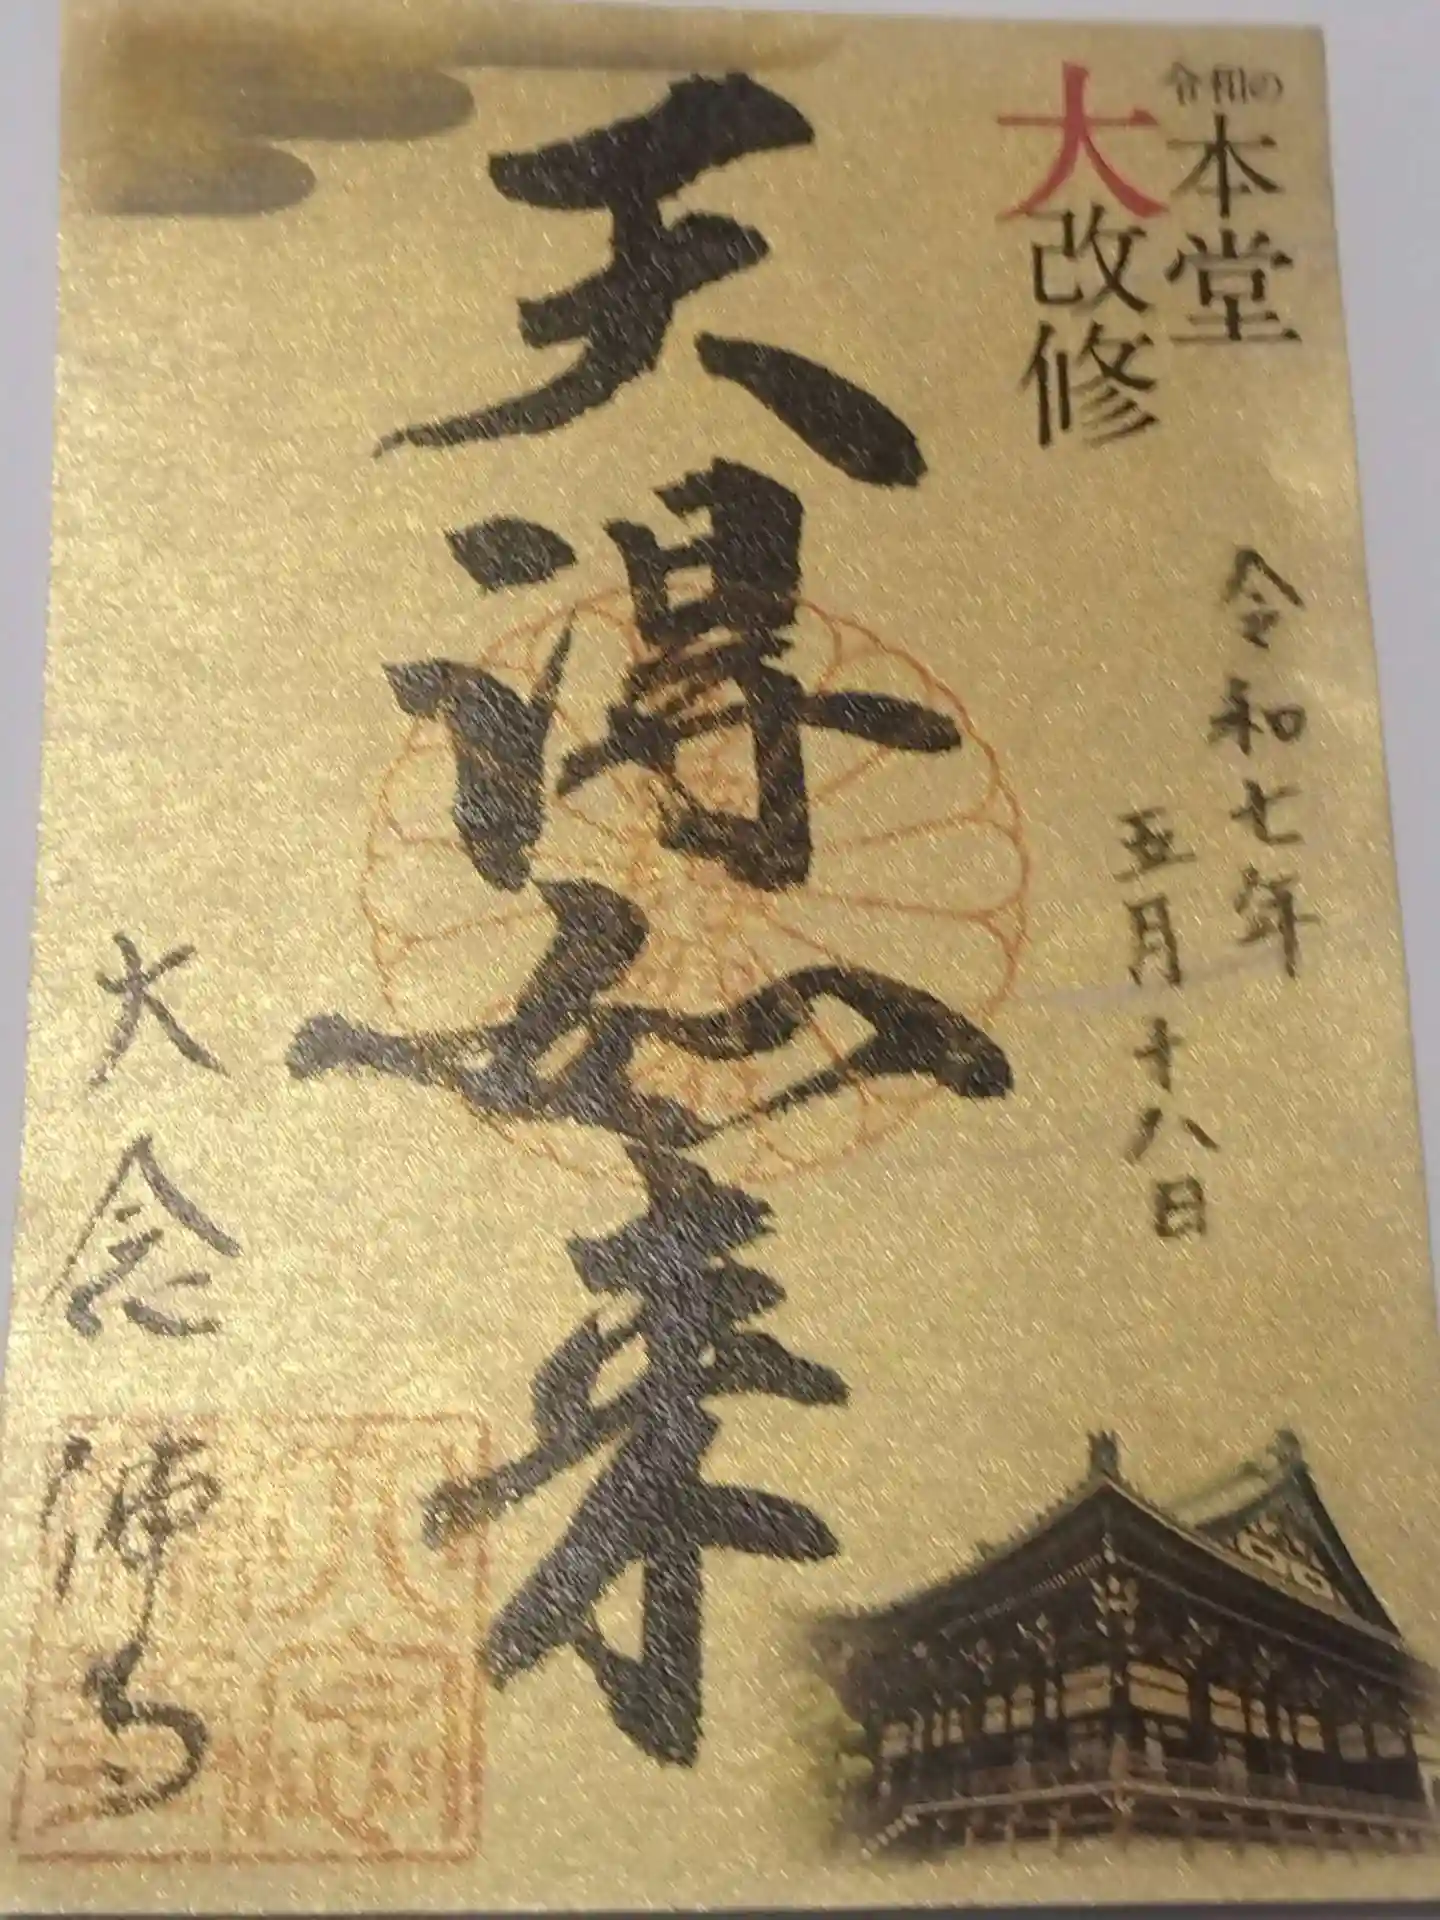 令和の
本堂
大改修
令和七年
五月十八日
天得如来
大念佛寺